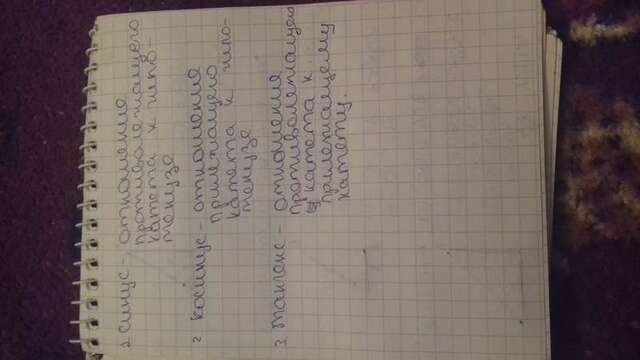 1 синус - отношение
противолежащего
катета к гипо-
тенузе
2 косинус - отношение
прилежащего
катета к гипо-
тенузе
3 тангенс - отношение
противолежащего
катета к
прилежащему
катету.